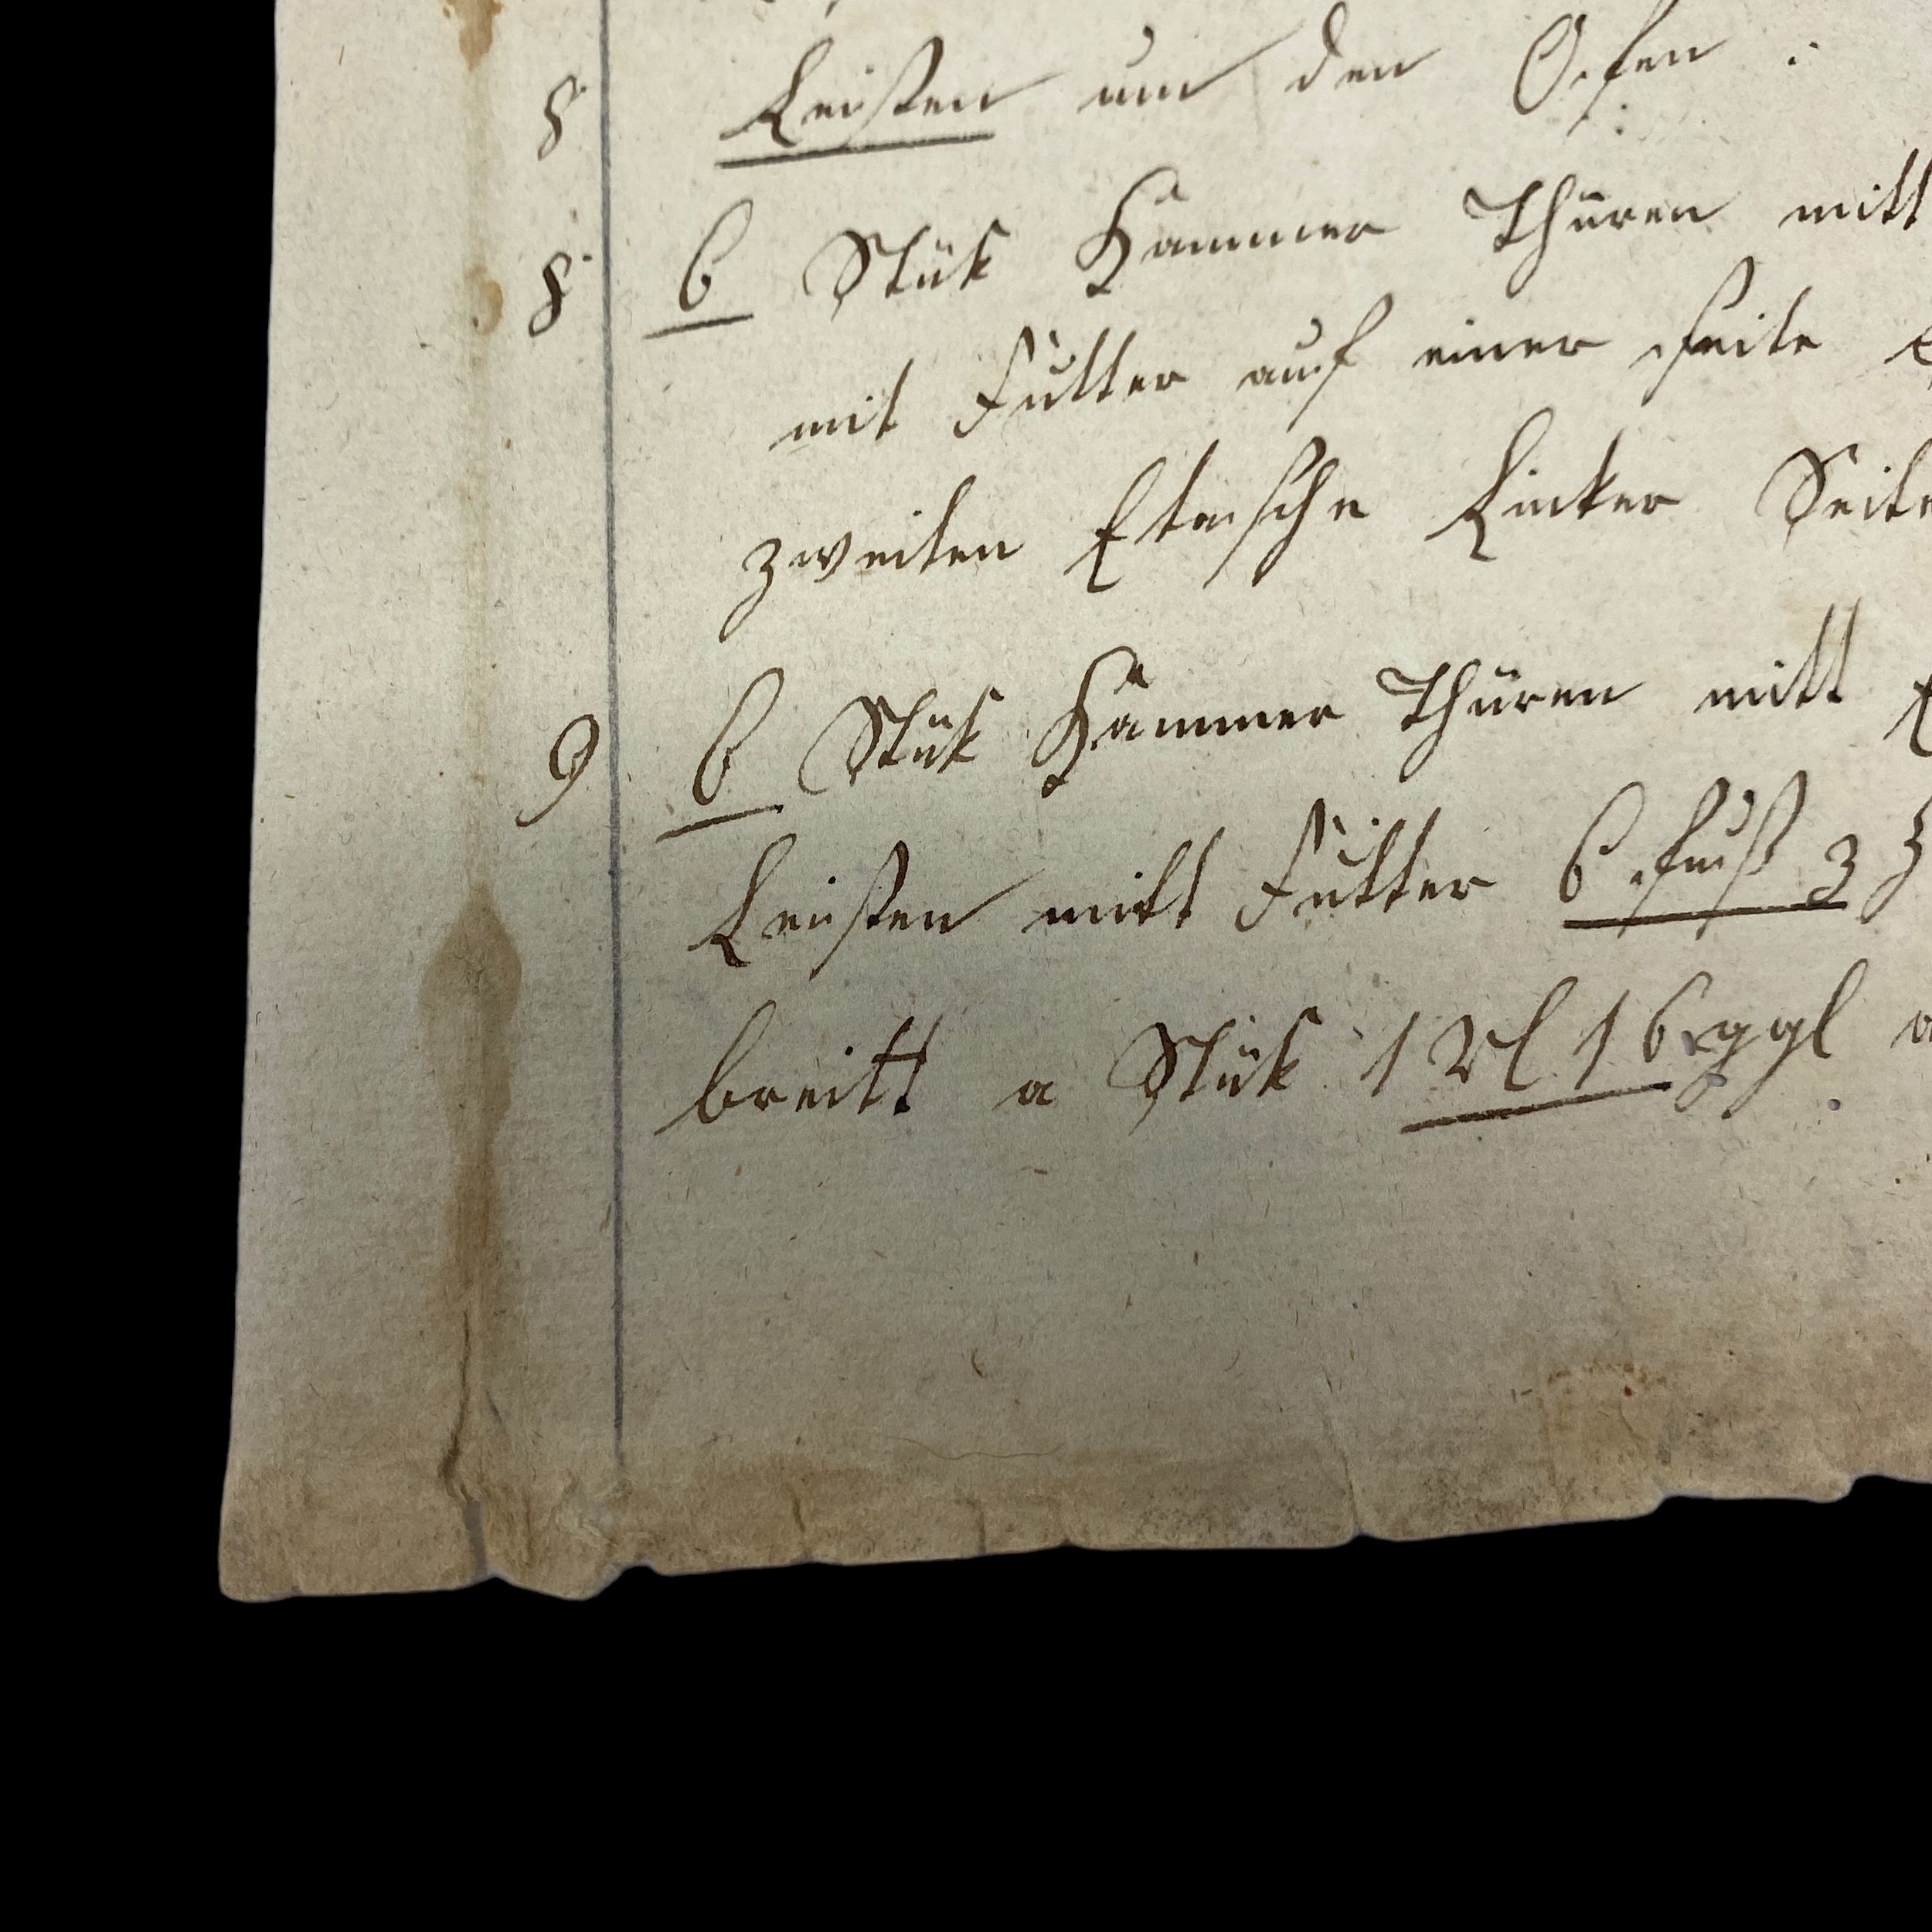 8 Leisten um den Ofen :
8 6 Stük Kammer Thüren mitt
mit Futter auf einer seite
zweiten Etasche Lincker Seite
9 6 Stük Kammer Thüren mitt
Leisten mitt Futter 6 fuß 3 Z
breitt a Stük 1 Rl 16 ggl